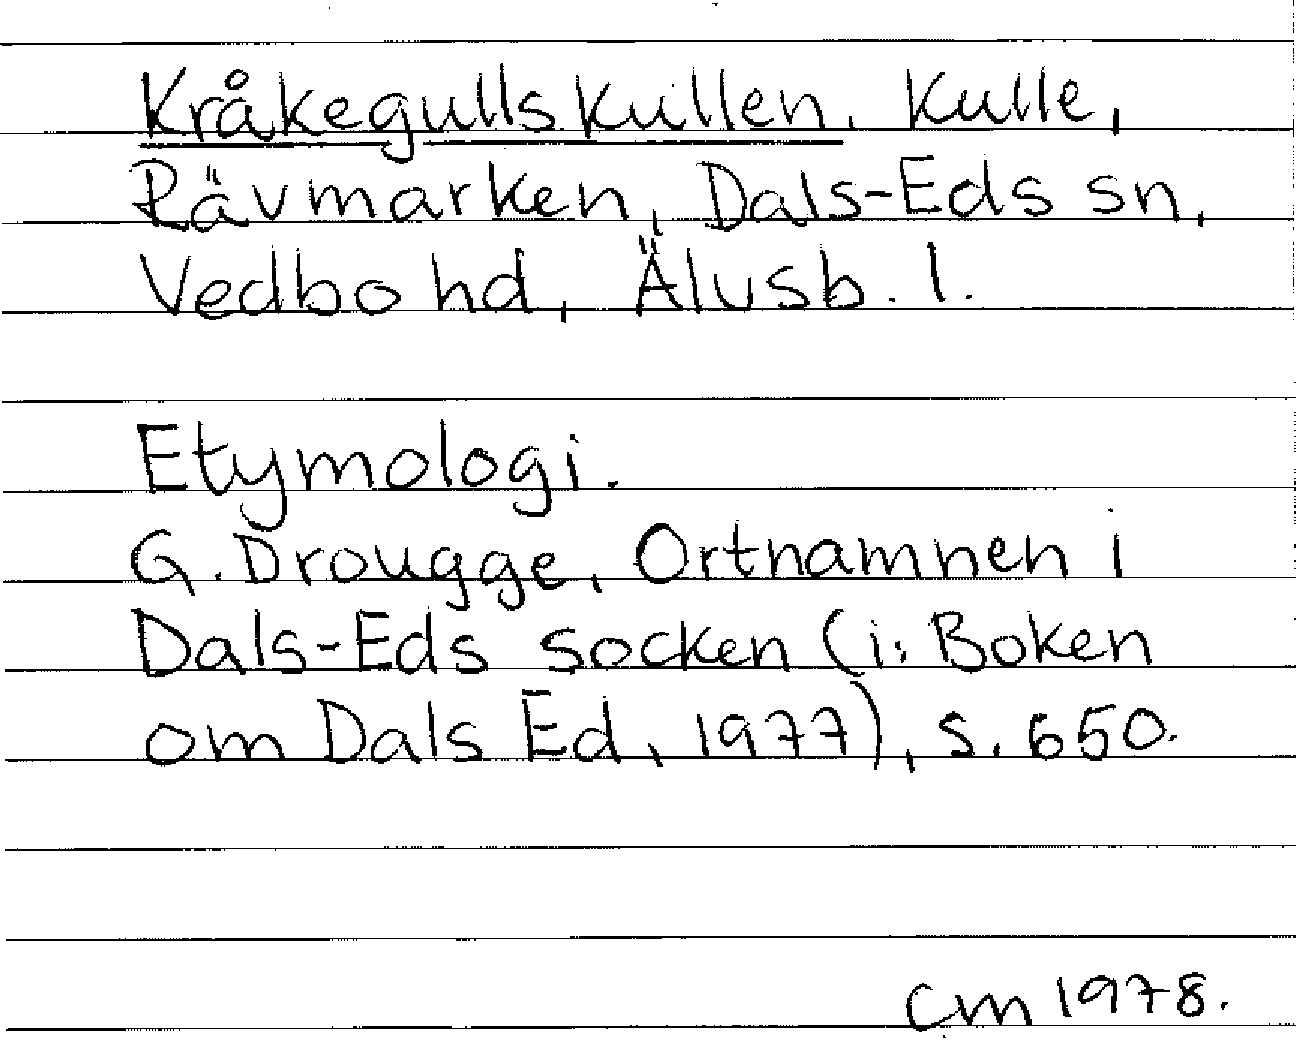 Kråkegullskullen, Kulle,
Rävmarken, Dals-Eds sn,
Vedbo hd, Älvsb. l.
Etymologi.
G. Drougge, Ortnamnen i
Dals-Eds socken (i: Boken
om Dals Ed, 1977), s. 650.
cm 1978.